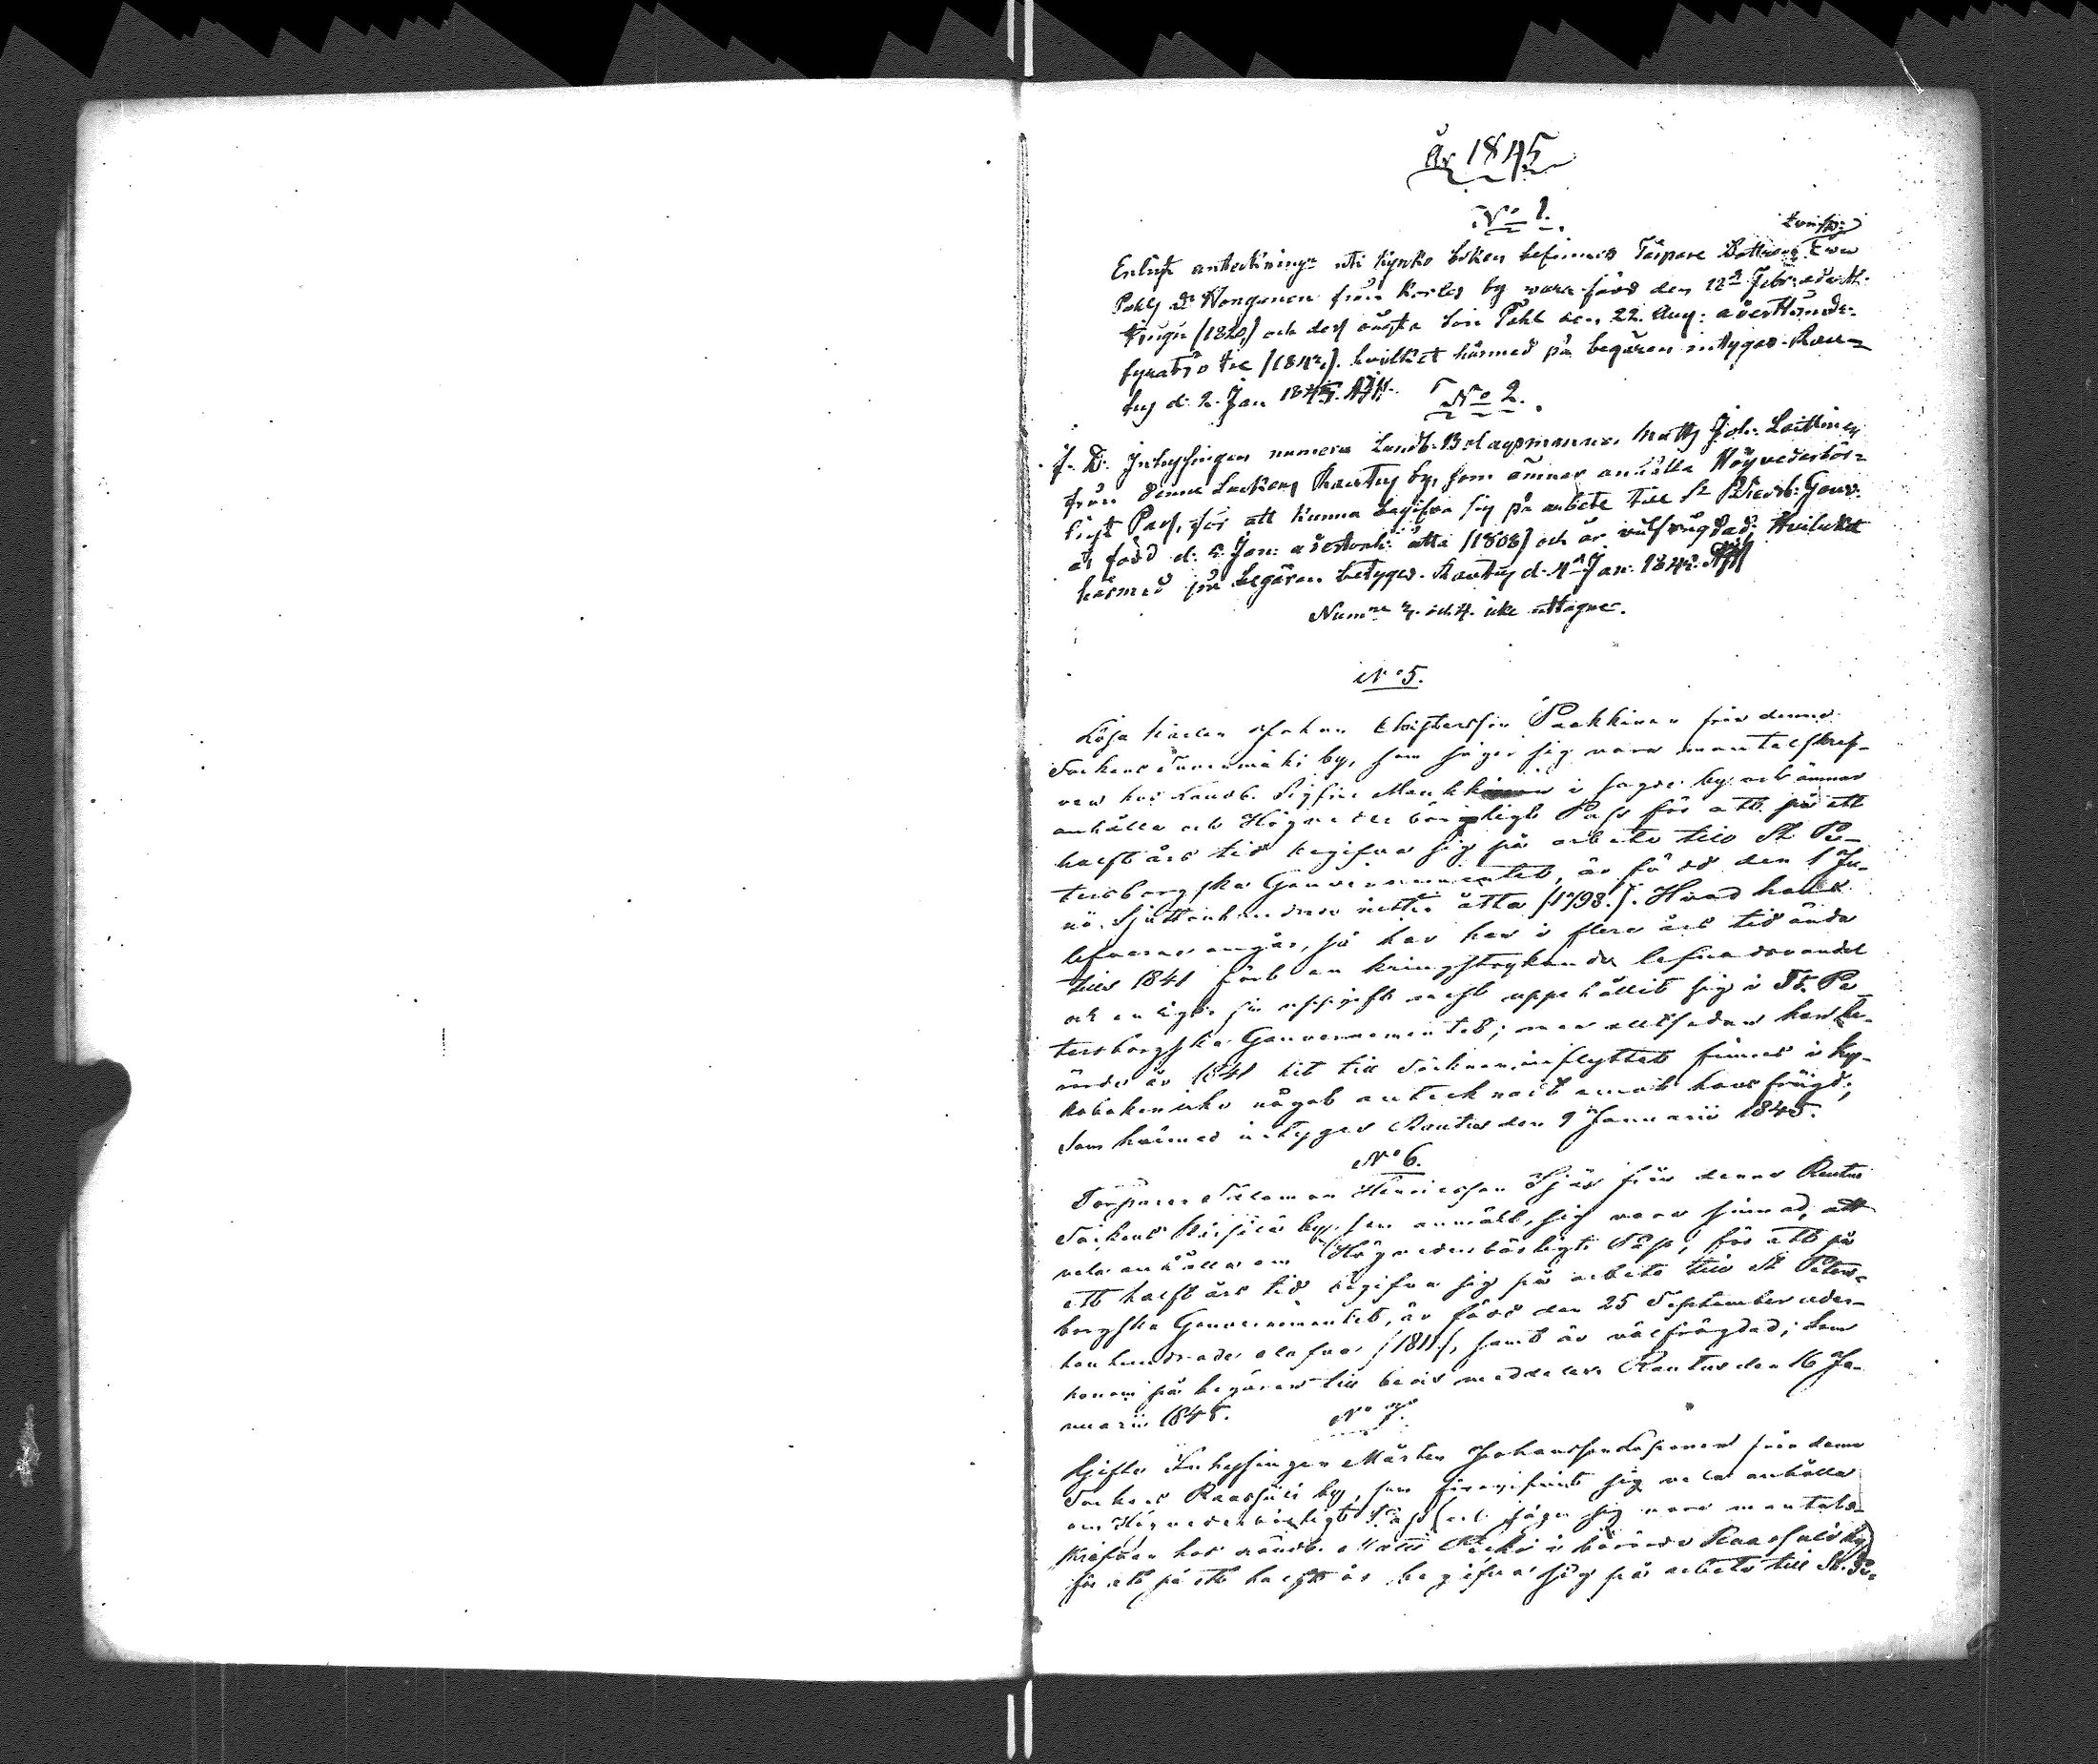 År 1845
No 1.
Enligt anteckning uti Kyrko boken befinnes Torpare Dottren Ewa
Pohls Dr Wonganen från Korles by vara född den 12 Febr. adertt.
tjugu (1820) och des äusta son Pehl den 22. Aug: aderttunde-
fyratio tre (1843). hvilket härmed på begäran intygas. Rau-
tus d. 2. Jan 1845.
No 2.
F. D. Inhysingen numera Landb. Bolagsmannen Matts Joh: Leittinen
från denna Sockens Rautus by, som ämnar anhålla Högvederbör-
ligt Pass, för att kunna begifva sig på arbete till St Petersb: Gouv:
är född d. 5 Jan: adertonh: åtta (1808) och är välfrägdad; Hvilcket
härmed på begäran betygas. Rautus d. 4 Jan: 1845.
Numne 3. och 4. icke uttagne.
No 5.
Lösa karlen Johan Christersson Paakkinen från denna
Sockens Suurimäki by, som säger sig vara mantalsskref-
ven hos Landb. Sigfrid Maukkonen i sagde by och ämnar
anhålla och Högvederbörligt Pass för att på ett
halft års tid begifva sig på arbete till St Pe-
tersborgska Gouvernementet, är född den 1 Ju-
nii Sjuttonhundrade nittio åtta (1798.). Hvad hans
lefverne angår, så har han i flera års tid ända
till 1841 fört en kringstrykande lefnadsvandel
och enligt sin uppgift mest uppehållit sig i St. Pe-
tersborgska Gouvernementet; men alltsedan han be-
rörde år 1841 hit till Socknen inflyttat finnes i Kyr-
koboken icke något antecknadt emot hans frägd;
Som härmed intygas Rautus den 9 Januarii 1845.
No 6.
Torparen Salomon Henricsson Sjär från denna Rautus
Sockens Raijälä by, som anmält sig vara sinnad, att
vela anhålla om Högvederbörligt Pass, för att på
ett halft års tid begifva sig på arbete till St Peters-
borgska Gouvernementet, är född den 25 September ader-
tonhundrade elefva (1811), samt är välfrägdad; Som
honom på begäran till bevis meddelas Rautus den 16 Ja-
nuarii 1845.
No 7.
Gifta Inhysingen Mårten Johansson Loponen från denna
Sockens Raasuli by, som föregifvit sig vela anhålla
om Högvederbörligt Pass (och säger sig vara mantals-
skrefven hos Landb. Matts Rickoi i berörde Raasuli by)
för att på ett halft år begifva sig på arbete till St. Pe-